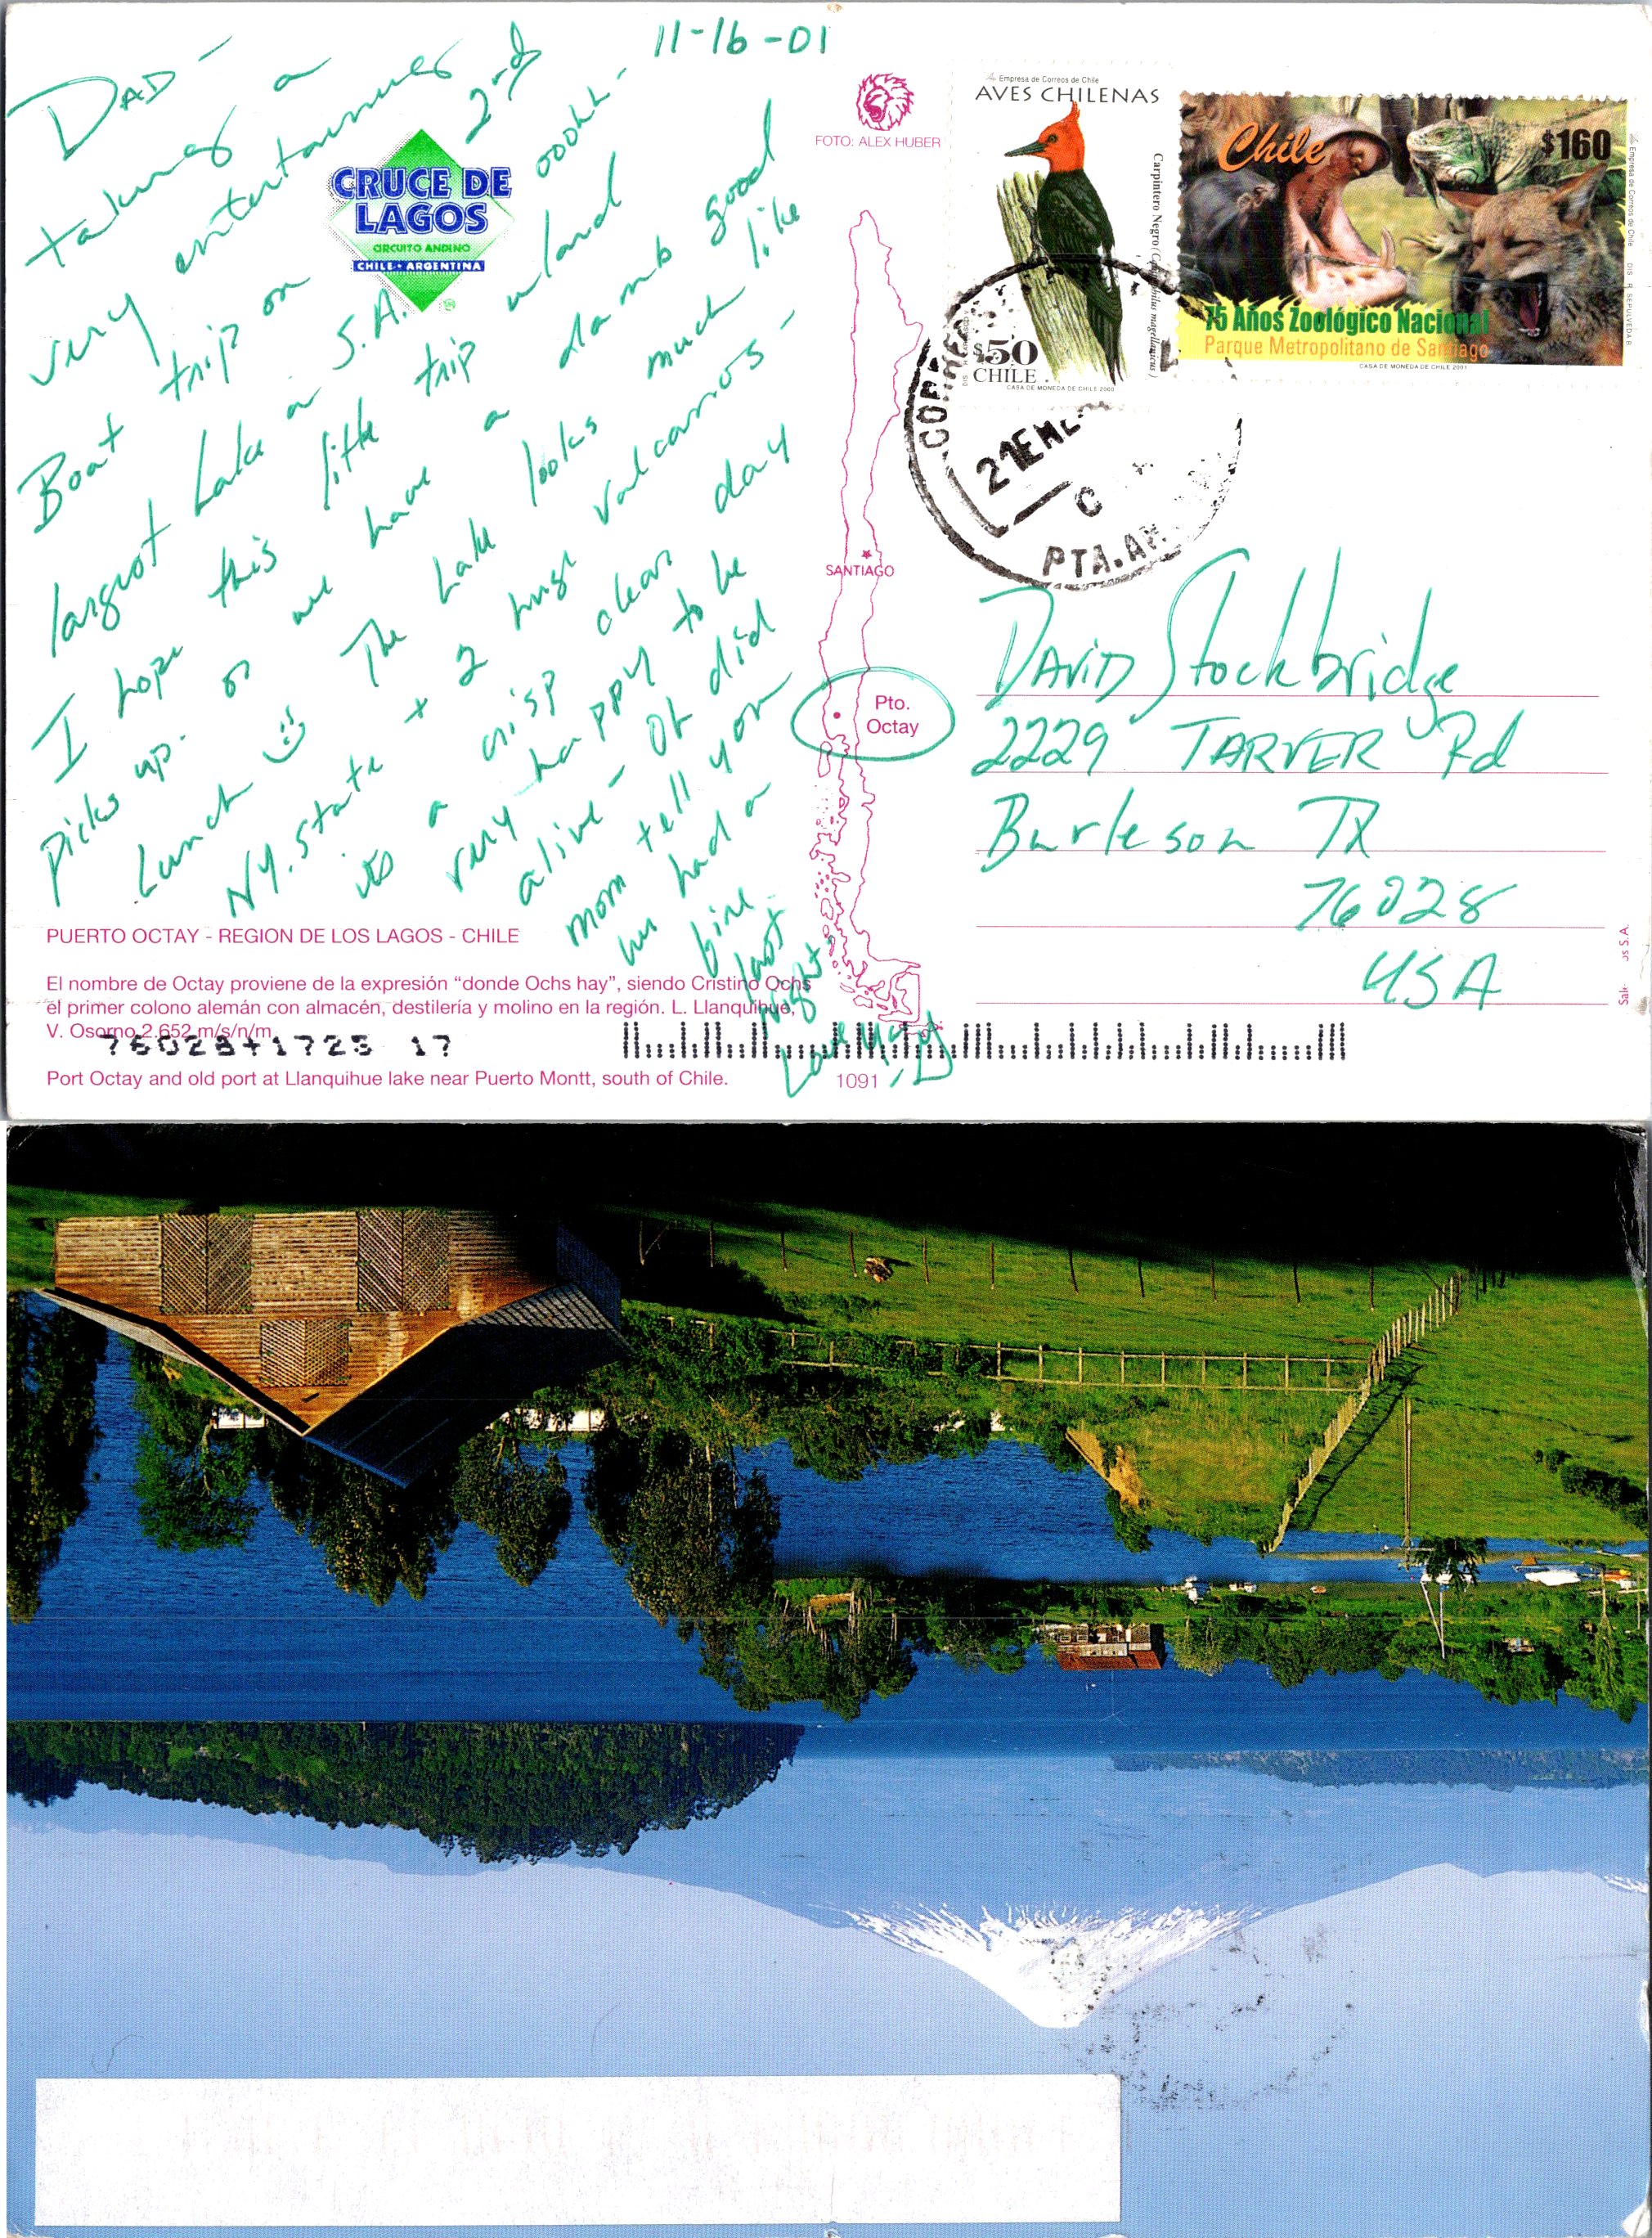 11-16-01
DAD -
taking a
very entertaining
Boat trip on 2nd
largest Lake in S.A. oohh-
I hope this little trip
picks up. or we have a damb good
Lunch The Lake looks much like
NY. State + 2 huge volcanos -
its a crisp clear day
very happy to be
alive - did
mom tell you
had a
fire
last
night
Love
CRUCE DE
LAGOS
CIRCUITO ANDINO
CHILE - ARGENTINA
FOTO: ALEX HUBER
Empresa de Correos de Chile
AVES CHILENAS
Carpintero Negro (Campephilus magellanicus)
$50
CHILE
CASA DE MONEDA DE CHILE 2000
Chile
$160
Empresa de Correos de Chile DIS. R. SEPULVEDA B.
75 Años Zoológico Nacional
Parque Metropolitano de Santiago
CASA DE MONEDA DE CHILE 2001
CORREOS
21 ENE
C
PTA.AR
SANTIAGO
Pto.
Octay
DAVID Stockbridge
2229 TARVER Rd
Burleson TX
76028
USA
PUERTO OCTAY - REGION DE LOS LAGOS - CHILE
El nombre de Octay proviene de la expresión “donde Ochs hay”, siendo Cristino Ochs
el primer colono alemán con almacén, destilería y molino en la región. L. Llanquihue,
V. Osorno 2.652 m/s/n/m.
76028+1725 17
Port Octay and old port at Llanquihue lake near Puerto Montt, south of Chile.
1091